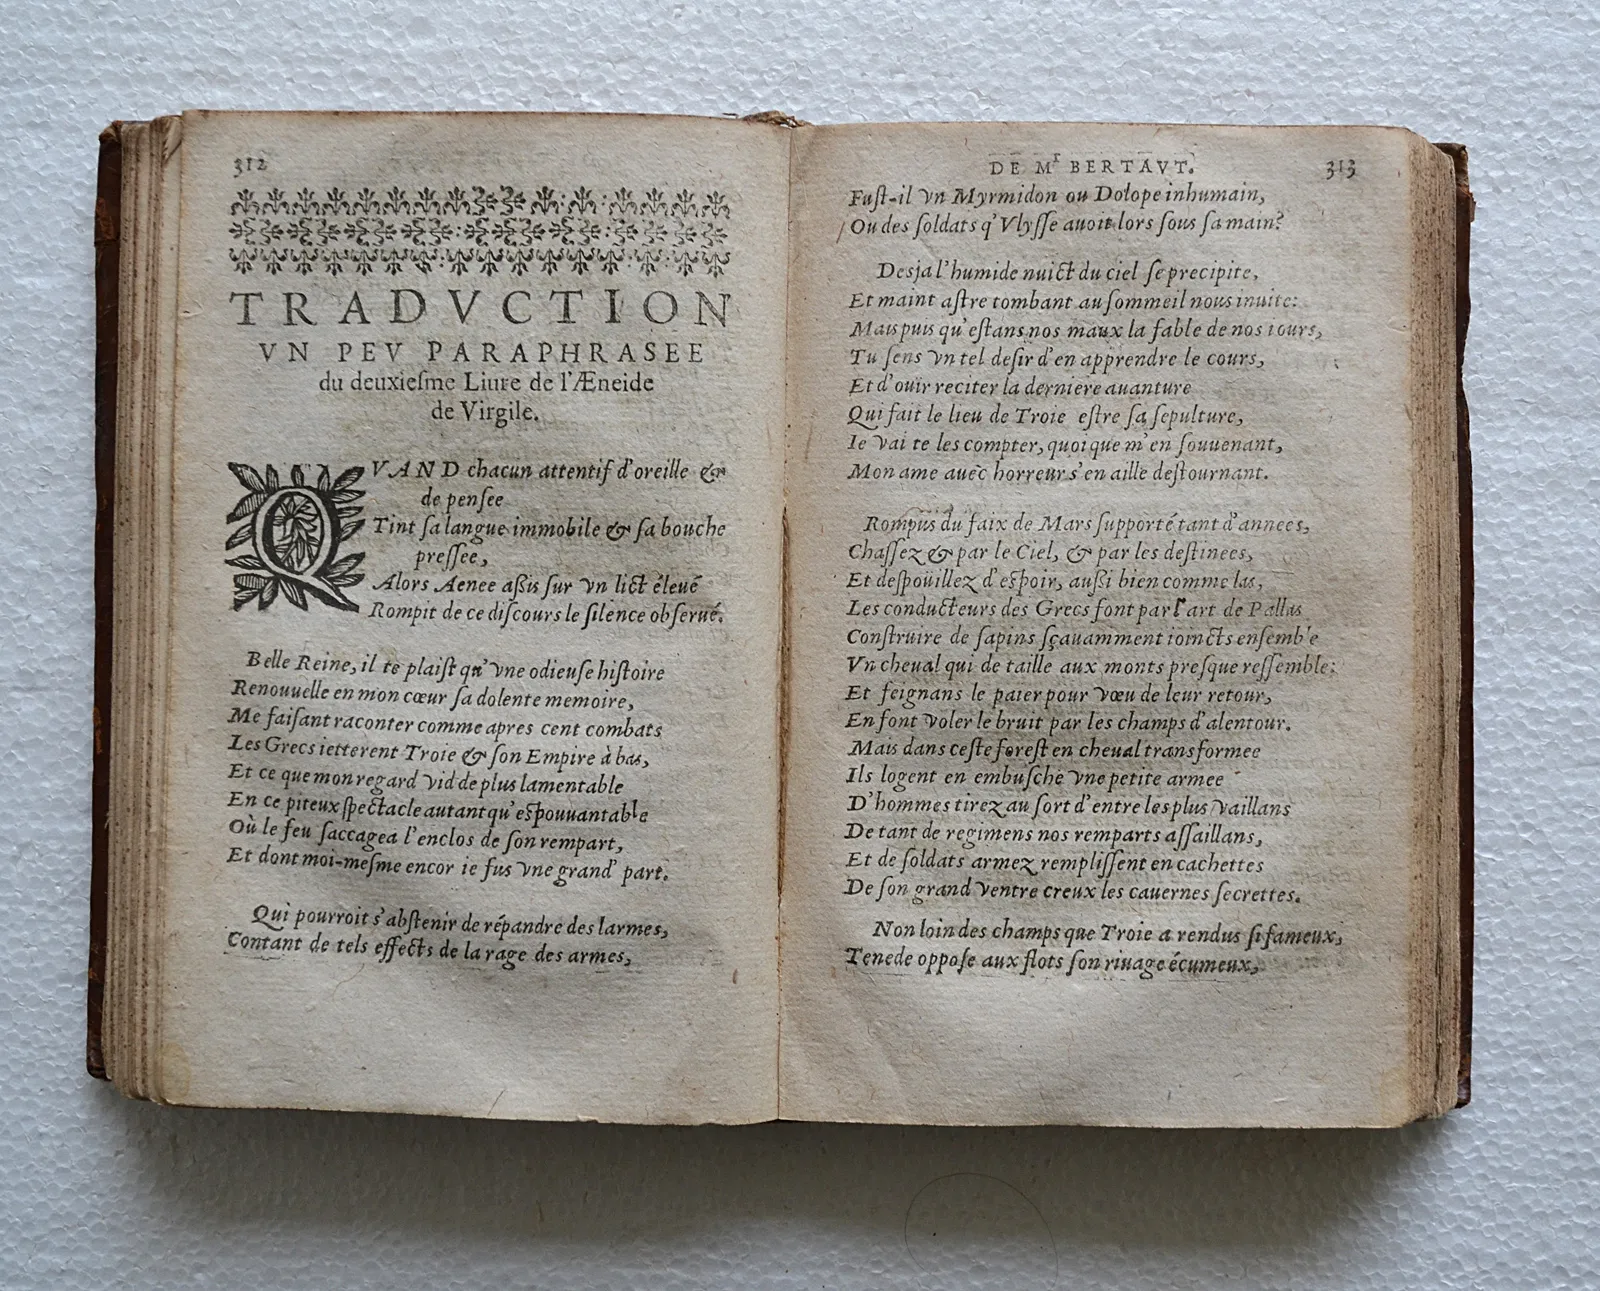 312
TRADVCTION
VN PEV PARAPHRASEE
du deuxiesme Liure de l'Æneide
de Virgile.
QVAND chacun attentif d'oreille &
de pensee
Tint sa langue immobile & sa bouche
pressee,
Alors Aenee aßis sur vn lict éleué
Rompit de ce discours le silence obserué.
Belle Reine, il te plaist qu'vne odieuse histoire
Renouuelle en mon cœur sa dolente memoire,
Me faisant raconter comme apres cent combats
Les Grecs ietterent Troie & son Empire à bas,
Et ce que mon regard vid de plus lamentable
En ce piteux spectacle autant qu'espouuantable
Où le feu saccagea l'enclos de son rempart,
Et dont moi-mesme encor ie fus vne grand' part.
Qui pourroit s'abstenir de répandre des larmes,
Contant de tels effects de la rage des armes,
DE Mr BERTAVT. 313
Fust-il vn Myrmidon ou Dolope inhumain,
Ou des soldats q' Vlysse auoit lors sous sa main?
Desja l'humide nuict du ciel se precipite,
Et maint astre tombant au sommeil nous inuite:
Mais puis qu'estans nos maux la fable de nos iours,
Tu sens vn tel desir d'en apprendre le cours,
Et d'ouir reciter la derniere auanture
Qui fait le lieu de Troie estre sa sepulture,
Ie vai te les compter, quoi que m'en souuenant,
Mon ame auec horreur s'en aille destournant.
Rompus du faix de Mars supporté tant d'annees,
Chassez & par le Ciel, & par les destinees,
Et despoüillez d'espoir, außi bien comme las,
Les conducteurs des Grecs font par l'art de Pallas
Construire de sapins sçauamment ioincts ensemble
Vn cheual qui de taille aux monts presque ressemble:
Et feignans le paier pour vœu de leur retour,
En font voler le bruit par les champs d'alentour.
Mais dans ceste forest en cheual transformee
Ils logent en embusche vne petite armee
D'hommes tirez au sort d'entre les plus vaillans
De tant de regimens nos remparts assaillans,
Et de soldats armez remplissent en cachettes
De son grand ventre creux les cauernes secrettes.
Non loin des champs que Troie a rendus si fameux,
Tenede oppose aux flots son riuage écumeux,